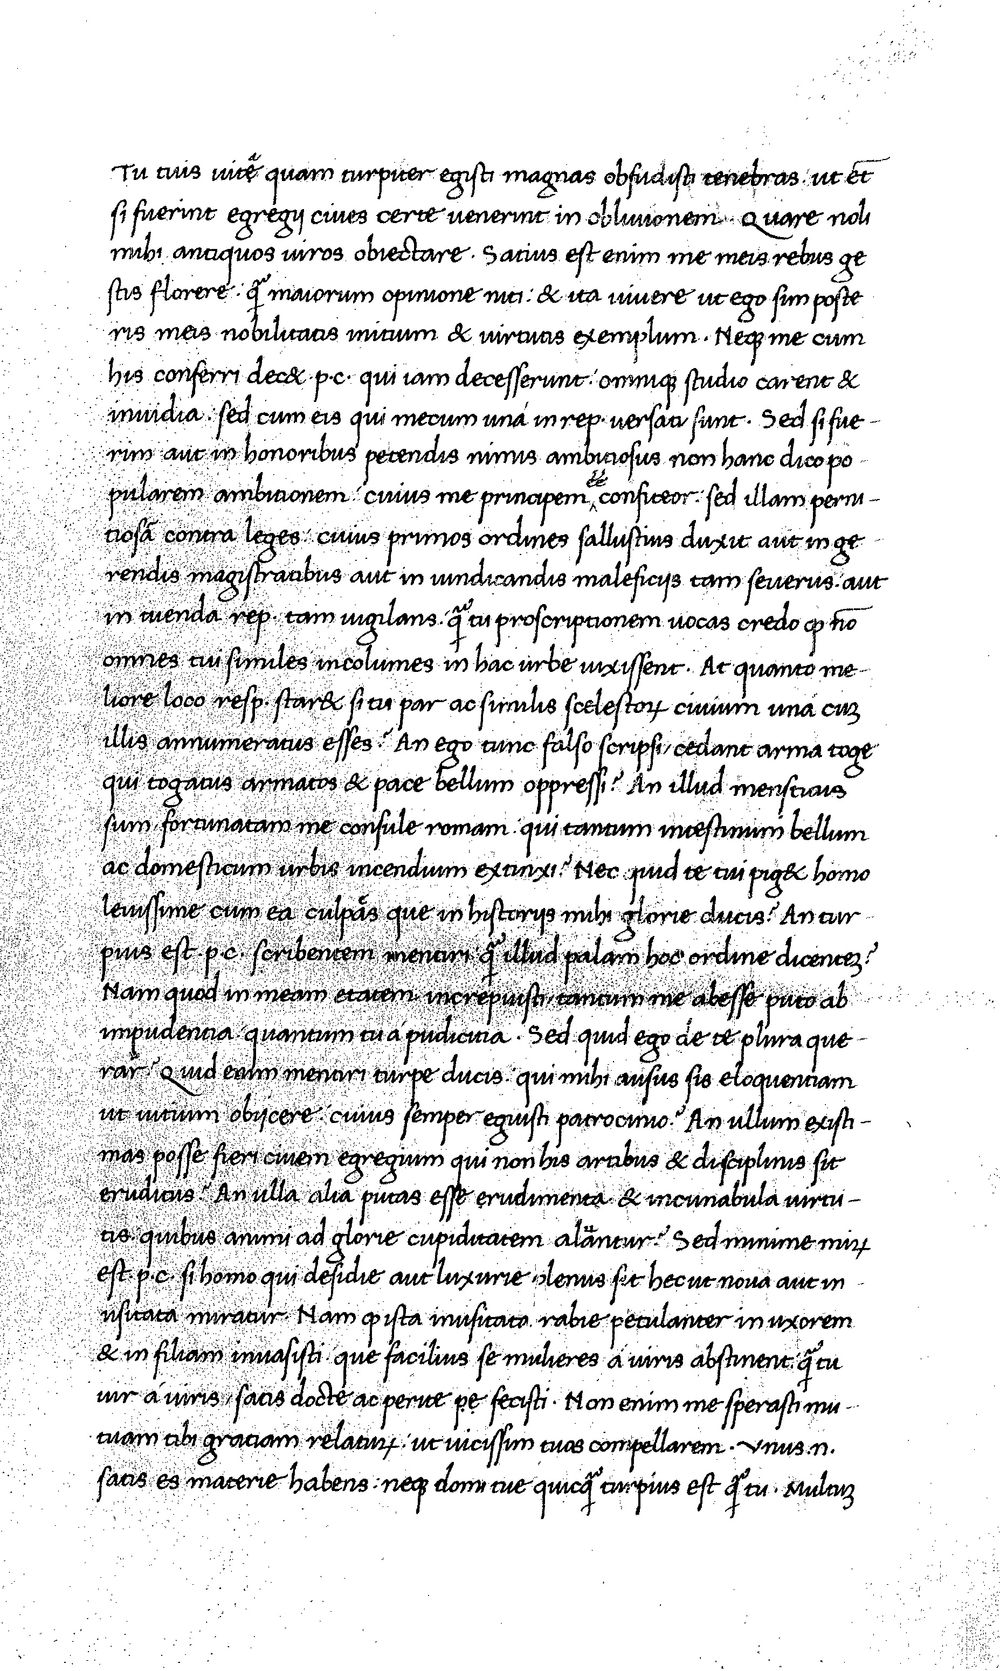 Tu tuis uitę̄ quam turpiter egisti magnas obfudisti tenebras: ut et̄
si fuerint egregij ciues certe uenerint in obliuionem. Quare noli
mihi antiquos uiros obiectare. Satius est enim me meis rebus ge
stis florere: q̃ maiorum opinione niti: & ita uiuere ut ego sim poste
ris meis nobilitatis initium & uirtutis exemplum. Neqꝫ me cum
his conferri dec& p.c. qui iam decesserunt: omniqꝫ studio carent &
inuidia: sed cum eis qui mecum uná in rep. uersati sunt. Sed si fue-
rim aut in honoribus petendis nimis ambitiosus non hanc dico po-
pularem ambitionem: cuius me principem e͞e͞ confiteor: sed illam perni-
tiosā contra leges: cuius primos ordines sallustius duxit aut in ge
rendis magistratibus aut in uindicandis maleficijs tam seuerus: aut
in tuenda rep. tam uigilans: q̃ tu proscriptionem uocas credo ꝙ nō
omnes tui similes incolumes in hac urbe uixissent. At quanto me-
liore loco resp. star& si tu par ac similis scelestoꝝ ciuium uná cuꝫ
illis annumeratus esses? An ego tunc falso scripsi, cedant arma toge
qui togatus armatos & pace bellum oppressi? An illud mentitus
sum fortunatam me consule romam: qui tantum intestinum bellum
ac domesticum urbis incendium extinxi? Nec quid te tui pig& homo
leuissime cum ea culpās que in historijs mihi glorie ducis? An tur
pius est p.c. scribentem mentiri q̃ illud palam hoc ordine dicenteꝫ?
Nam quod in meam etatem increpuisti, tantum me abesse puto ab
impudentia: quantum tu á pudicitia. Sed quid ego de te plura que-
rar? Quid enim mentiri turpe ducis: qui mihi ausus sis eloquentiam
ut uitium obijcere: cuius semper eguisti patrocinio? An ullum existi-
mas posse fieri ciuem egregium qui non his artibus & disciplinis sit
eruditus? An ulla alia putas esse erudimenta & incunabula uirtu-
tis: quibus animi ad glorie cupiditatem alāntur? Sed minime miꝝ
est p.c. si homo qui desidie aut luxurie plenus sit hec ut noua aut in
usitata miratur. Nam ꝙ ista inusitata rabie petulanter in uxorem
& in filiam inuasisti que facilius se mulieres á uiris abstinent: q̃ tu
uir á uiris, satis docte ac perite pe fecisti. Non enim me sperasti mu-
tuam tibi gratiam relatuꝝ: ut uicissim tuos compellarem. Vnus .n.
satis es materie habens: neqꝫ domi tue quicq̃ turpius est q̃ tu. Multuꝫ